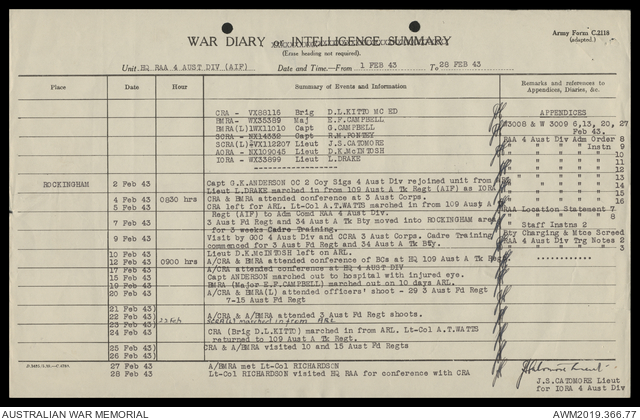 Army Form C.2118
(adapted.)
WAR DIARY or INTELLIGENCE SUMMARY
(Erase heading not required).
Unit HQ RAA 4 AUST DIV (AIF) Date and Time.—From 1 FEB 43 To 28 FEB 43
Place Date Hour Summary of Events and Information Remarks and references to Appendices, Diaries, &c.
CRA - VX88116 Brig D.L.KITTO MC ED
BMRA- WX35389 Maj E.F.CAMPBELL
BMRA(L)WX11010 Capt G.CAMPBELL
SCRA- NX14332 Capt
SCRA(L)VX112207 Lieut J.S.CATOMORE
AORA- NX109045 Lieut D.K.McINTOSH
IORA - WX33899 Lieut L.DRAKE
APPENDICES
W3008 & W 3009 6,13, 20, 27
Feb 43.
RAA 4 Aust Div Adm Order 8
" " " " Instn 9
" " " " " 10
" " " " " 11
" " " " " 12
" " " " " 13
" " " " " 14
" " " " " 15
" " " " " 16
RAA Location Statement 7
" " " 8
" Staff Instns 2
Bty Charging & Mtce Screed
RAA 4 Aust Div Trg Notes 2
" " " " " " 3
ROCKINGHAM 2 Feb 43 Capt G.K.ANDERSON OC 2 Coy Sigs 4 Aust Div rejoined unit from
Lieut L.DRAKE marched in from 109 Aust A Tk Regt (AIF) as IORA
4 Feb 43 0830 hrs CRA & BMRA attended conference at 3 Aust Corps.
6 Feb 43 CRA left for ARL. Lt-Col A.T.WATTS marched in from 109 Aust A
Regt (AIF) to Adm Comd RAA 4 Aust Div.
7 Feb 43 3 Aust Fd Regt and 34 Aust A Tk Bty moved into ROCKINGHAM area
for 3 weeks Cadre Training.
9 Feb 43 Visit by GOC 4 Aust Div and CCRA 3 Aust Corps. Cadre Training
commenced for 3 Aust Fd Regt and 34 Aust A Tk Bty.
10 Feb 43 Lieut D.K.McINTOSH left on ARL.
12 Feb 43 0900 hrs A/CRA & BMRA attended conference of BCs at HQ 109 Aust A Tk Regt
17 Feb 43 A/CRA attended conference at HQ 4 AUST DIV
15 Feb 43 Capt ANDERSON marched out to hospital with injured eye.
19 Feb 43 BMRA (Major E.F.CAMPBELL) marched out on 10 days ARL.
20 Feb 43 A/CRA & BMRA(L) attended officers' shoot - 29 3 Aust Fd Regt
7-15 Aust Fd Regt
21 Feb 43)
22 Feb 43) A/CRA & A/BMRA attended 3 Aust Fd Regt shoots.
23 Feb 43) 22 Feb SCRA(L) marched in from ARL
24 Feb 43 CRA (Brig D.L.KITTO) marched in from ARL. Lt-Col A.T.WATTS
returned to 109 Aust A Tk Regt.
25 Feb 43) CRA & A/BMRA visited 10 and 15 Aust Fd Regts
26 Feb 43)
27 Feb 43 A/BMRA met Lt-Col RICHARDSON
28 Feb 43 Lt-Col RICHARDSON visited HQ RAA for conference with CRA
J.S.CATOMORE Lieut
for IORA 4 Aust Div
AUSTRALIAN WAR MEMORIAL AWM2019.366.77